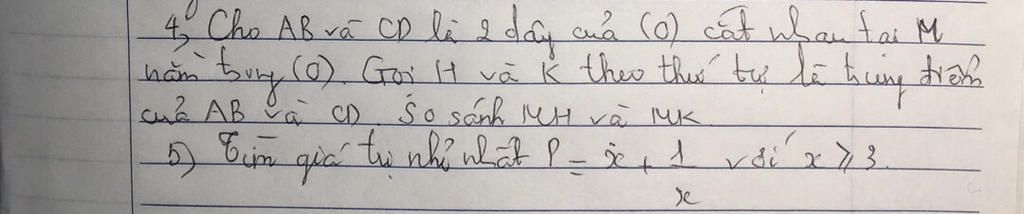 4) Cho AB và CD là 2 dây của (O) cắt nhau tại M
nằm trong (O). Gọi H và K theo thứ tự là trung điểm
của AB và CD. So sánh MH và MK
5) Tìm giá trị nhỏ nhất P = x + 1/x với x ⩾ 3.